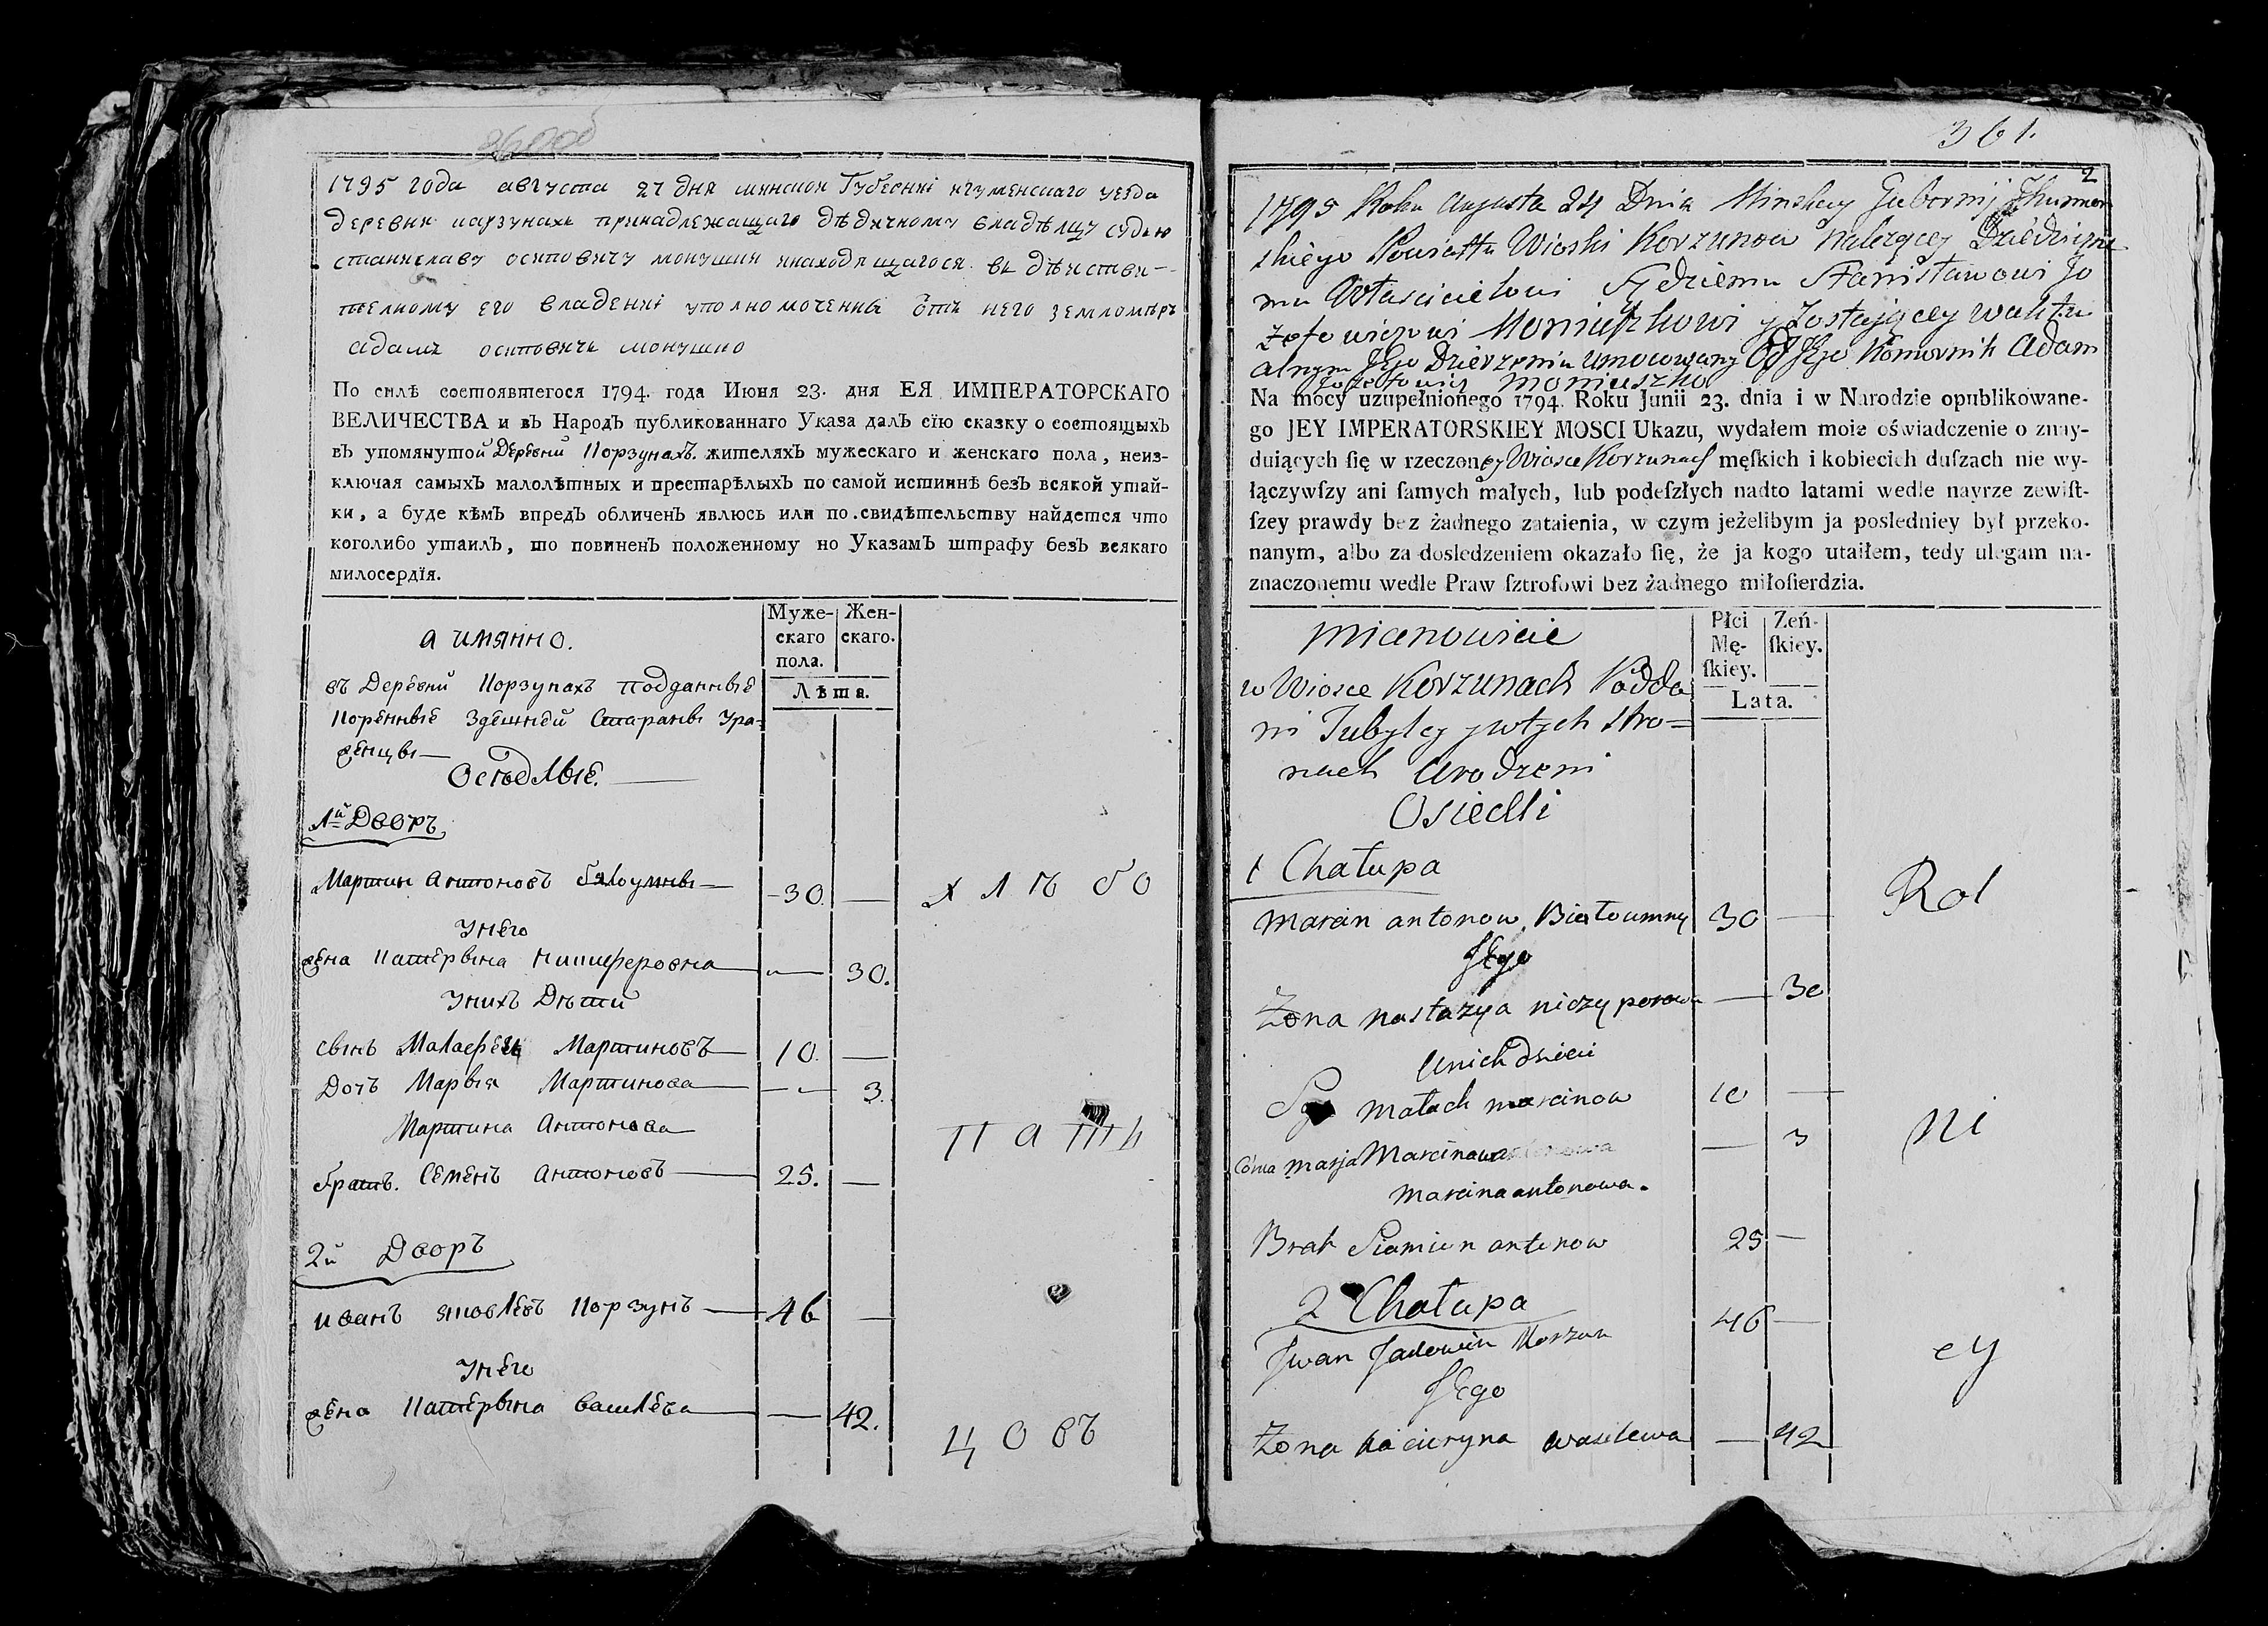 1795 года августа 27 дня минской Губерніи игуменскаго уезда
деревни корзунахъ принадлежащаго дѣдичному владѣлцу судью
станиславу осиповичу монушки инаходящагося въ дѣистви-
телному его владении уполномоченны отъ него землемѣръ
адамъ осиповичъ монушко
По силѣ состоявшегося 1794. года Июня 23. дня ЕЯ ИМПЕРАТОРСКАГО
ВЕЛИЧЕСТВА и въ Народъ публикованнаго Указа далъ сїю сказку о состоящыхъ
въ упомянутой Деревни Корзунахъ. жителяхъ мужескаго и женскаго пола, неиз-
ключая самыхъ малолѣтных и престарѣлыхъ по самой истиннѣ безъ всякой утай-
ки, а буде кѣмъ впредъ обличенъ явлюсь или по свидѣтельству найдется что
коголибо утаилъ, то повиненъ положенному по Указамъ штрафу безъ всякаго
милосердїя.
Муже-
скаго
пола.
Жен-
скаго.
Лѣта.
а имянно.
въ Деревни Корзунахъ подданные
Коренные Здешней Стараны Ура=
женцы
Оседлые.
1й Дворъ
Мартин антоновъ бялоумны 30. —
Унего
жена катерына ничиферовна — 30.
Унихъ Дѣти
сынъ Малафей Мартиновъ 10. —
Дочъ Марыя Мартинова — 3.
Мартина антонова
братъ. Семенъ антоновъ 25. —
2й Дворъ
иванъ яковлевъ Корзунъ 46 —
Унего
жена Катерына василева — 42.
хлѣбо
паш
цовъ
361.
2
1795 Roku Augusta 24 Dnia Minskey Gubernij Ihumen
skiego Powiattu Wioski Korzunow Nalezącey Dziedziczne
mu Właścicielowi Sędziemu Stanisławowi Jo
zefowiczowi Moniuszkowi y Zostającey waktu
alnym Jego Dzierzeniu Umocowany Od Jego Komornik Adam
Jozefowicz Moniuszko
Na mocy uzupełnionego 1794. Roku Junii 23. dnia i w Narodzie opublikowane-
go JEY IMPERATORSKIEY MOSCI Ukazu, wydałem moie oświadczenie o znay-
duiących ſię w rzeczoney Wiosce Korzunach męſkich i kobiecich duſzach nie wy-
łączywſzy ani ſamych małych, lub podeſzłych nadto latami wedle nayrze zewiſt-
ſzey prawdy bez żadnego zataienia, w czym jeżelibym ja posledniey był przeko-
nanym, albo za dosledzeniem okazało ſię, że ja kogo utaiłem, tedy ulegam na-
znaczonemu wedle Praw ſztrofowi bez żadnego miłoſierdzia.
Płci
Mę-
ſkiey.
Zeń-
ſkiey.
Lata.
mianowicie
w Wiosce Korzunach Podda
ni Tubylcy y wtych stro=
nach Urodzeni
Osiedli
1 Chałupa
Marcin antonow Białoumny 30 —
Jego
Zona nastazya niczyporowa — 30
Unich dzieci
Syn Małach marcinow 10 —
Córka marja Marcinowa — 3
Marcina antonowa.
Brat Siemien antonow 25 —
2 Chałupa
Jwan Jakowin Korzun 46 —
Jego
Zona kacieryna wasilewa — 42
Rol
ni
cy